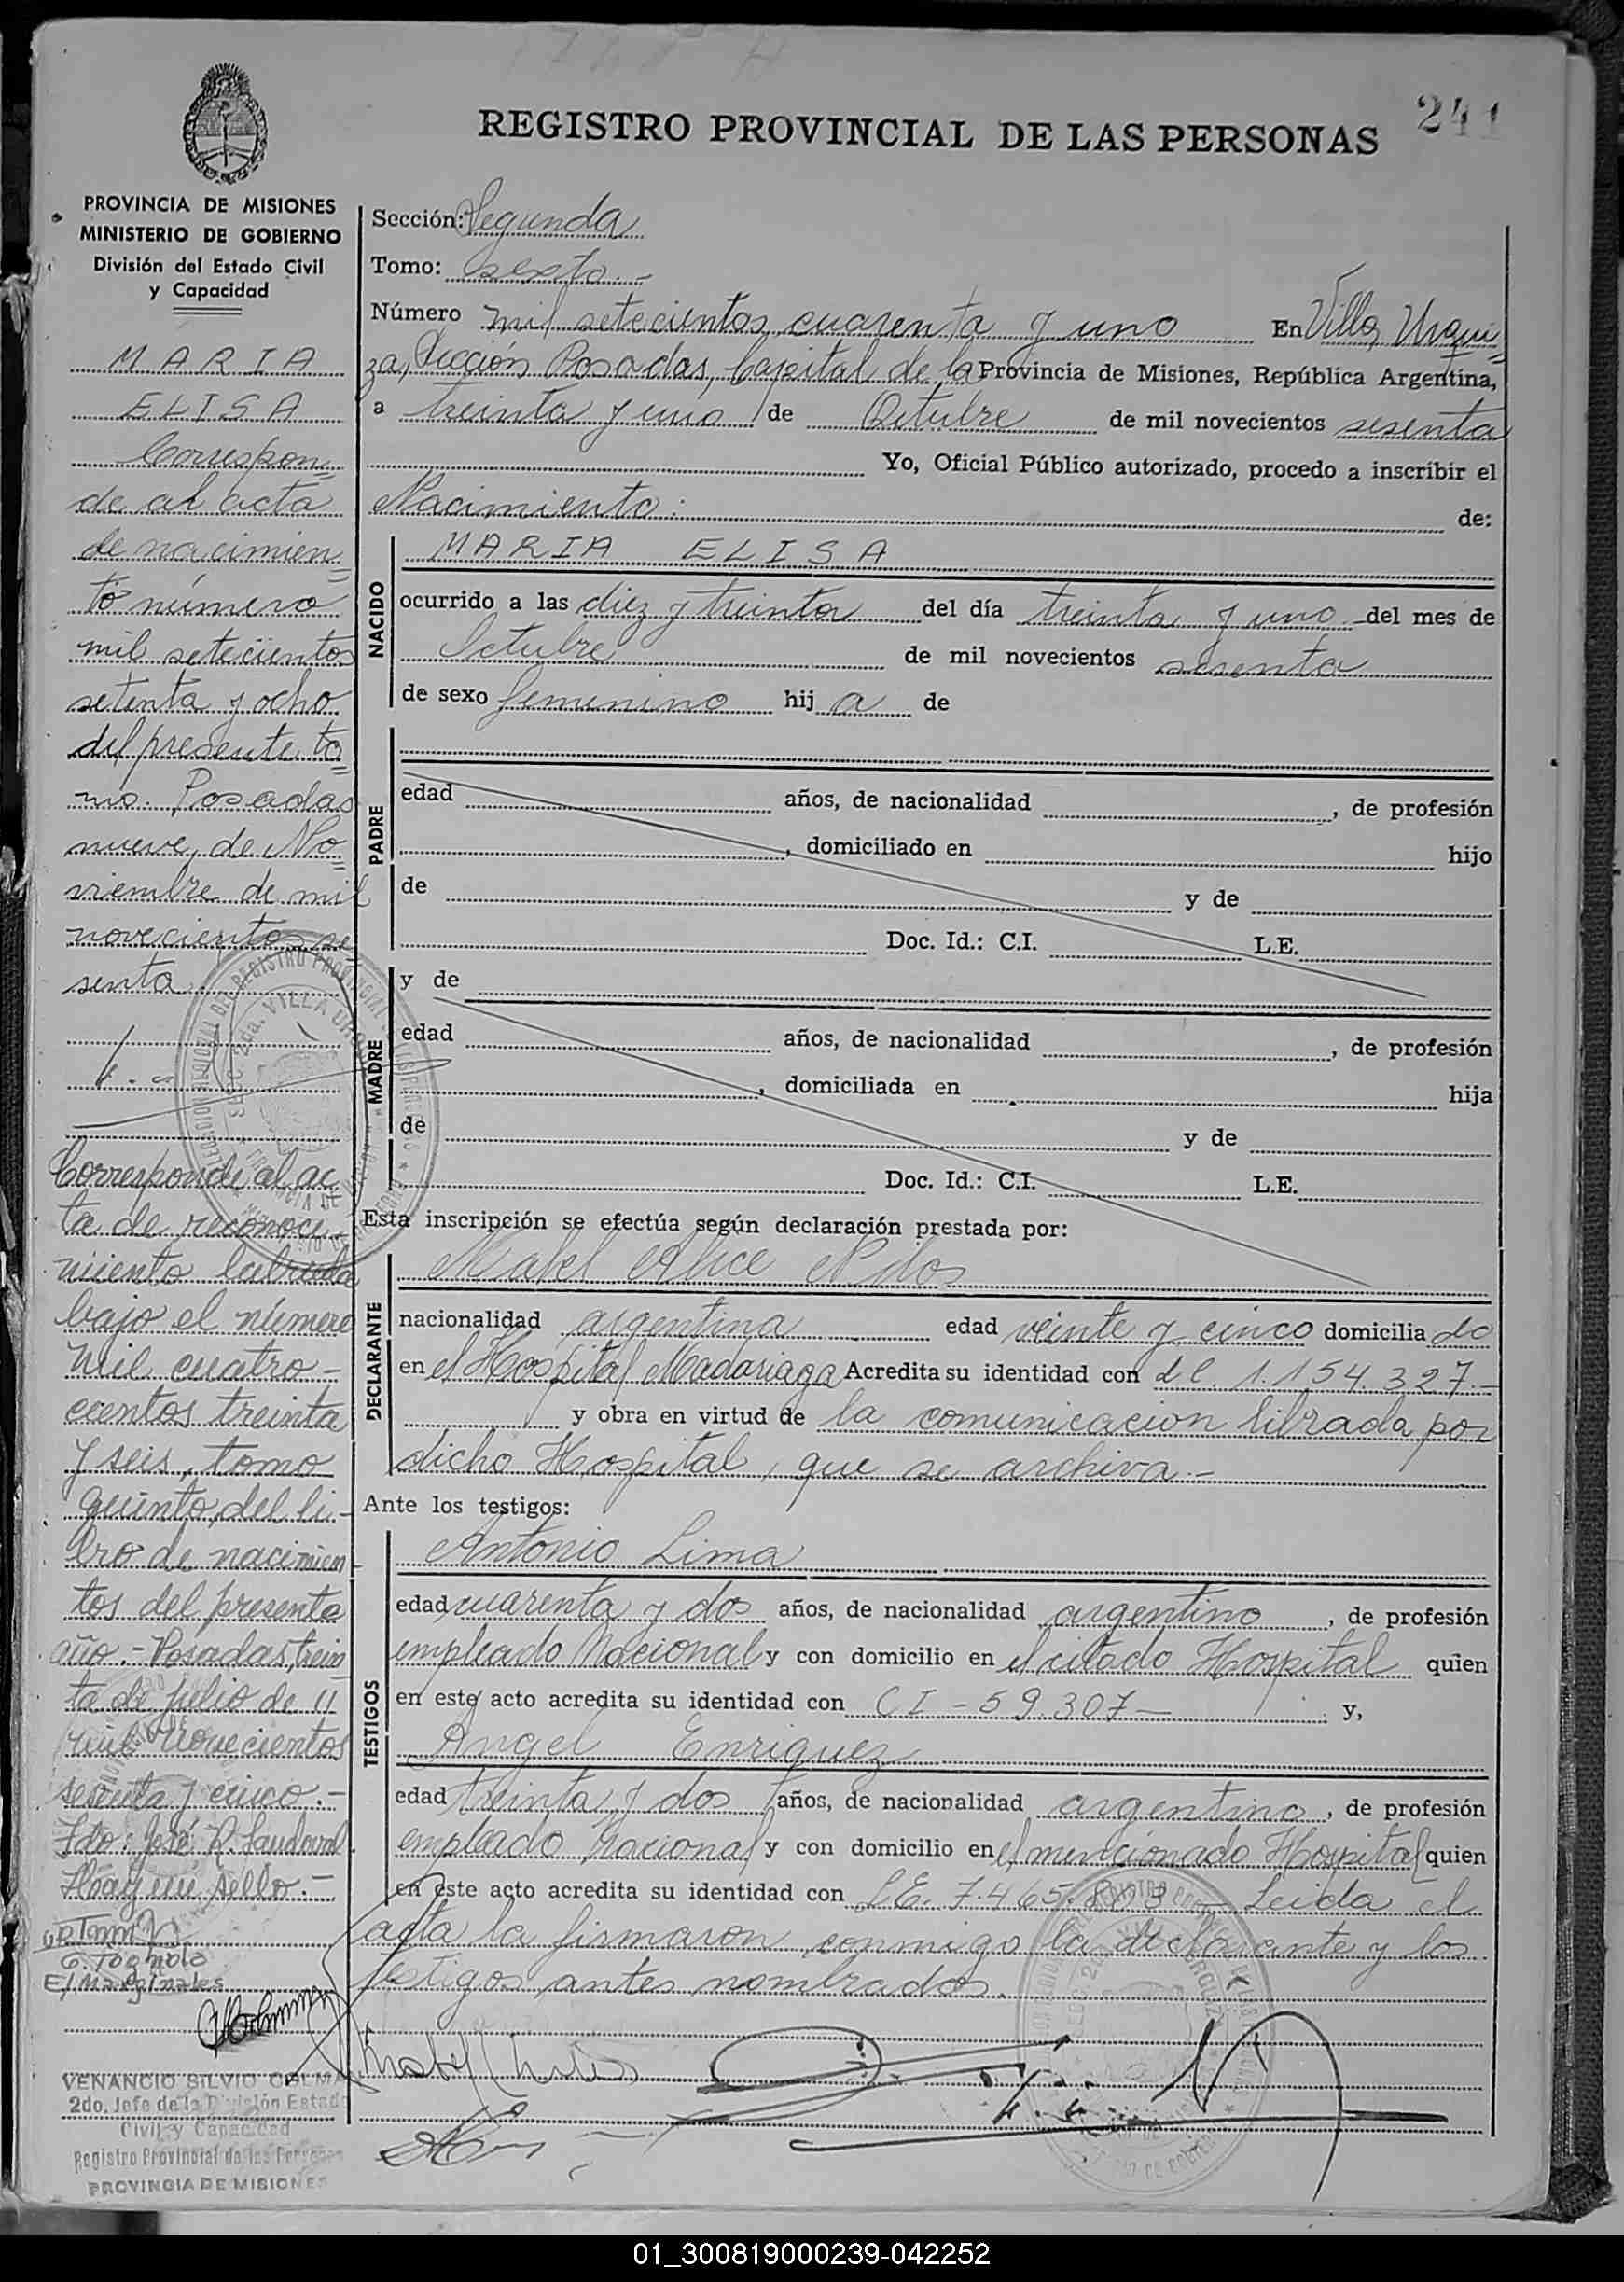 241
REGISTRO PROVINCIAL DE LAS PERSONAS
PROVINCIA DE MISIONES
MINISTERIO DE GOBIERNO
División del Estado Civil
y Capacidad
MARIA
ELISA
Correspon=
de al acta
de nacimien=
to número
mil setecientos
setenta y ocho
del presente to=
mo. Posadas
nueve, de No=
viembre de mil
novecientos se
senta.
Corresponde al ac
ta de reconoci-
miento labrada
bajo el número
mil cuatro-
cientos treinta
y seis, tomo
quinto, del li-
bro de nacimien
tos del presente
año.- Posadas, trein
ta de julio de
mil novecientos
sesenta y cinco.-
Fdo: José R. Sandoval
Hay un sello.-
G. Tognola
E/Marginales
VENANCIO SILVIO COLMA
2do. Jefe de la División Estado
Civil y Capacidad
Registro Provincial de las Personas
PROVINCIA DE MISIONES
Sección: Segunda
Tomo: sexto.-
Número mil setecientos cuarenta y uno En Villa Urqui=
za, Sección Posadas, Capital de la Provincia de Misiones, República Argentina,
a treinta y uno de Octubre de mil novecientos sesenta
Yo, Oficial Público autorizado, procedo a inscribir el
Nacimiento: de:
NACIDO
MARIA ELISA
ocurrido a las diez y treinta del día treinta y uno del mes de
Octubre de mil novecientos sesenta
de sexo femenino hija de
PADRE
edad años, de nacionalidad , de profesión
, domiciliado en hijo
de y de
Doc. Id.: C.I. L.E.
MADRE
y de
edad años, de nacionalidad , de profesión
, domiciliada en hija
de y de
Doc. Id.: C.I. L.E.
Esta inscripción se efectúa según declaración prestada por:
DECLARANTE
Mabel Alice Nilos
nacionalidad argentina edad veinte y cinco domiciliado
en el Hospital Madariaga Acredita su identidad con LC. 1.154.327.-
y obra en virtud de la comunicacion librada por
dicho Hospital, que se archiva.-
Ante los testigos:
TESTIGOS
Antonio Lima
edad cuarenta y dos años, de nacionalidad argentino, de profesión
empleado Nacional y con domicilio en el citado Hospital quien
en este acto acredita su identidad con CI-59.307- y,
Angel Enriquez
edad treinta y dos años, de nacionalidad argentino, de profesión
empleado Nacional y con domicilio en el mencionado Hospital quien
en este acto acredita su identidad con LE. 7.465.803 - Leida el
acta la firmaron conmigo la declarante y los
testigos antes nombrados.
01_300819000239-042252